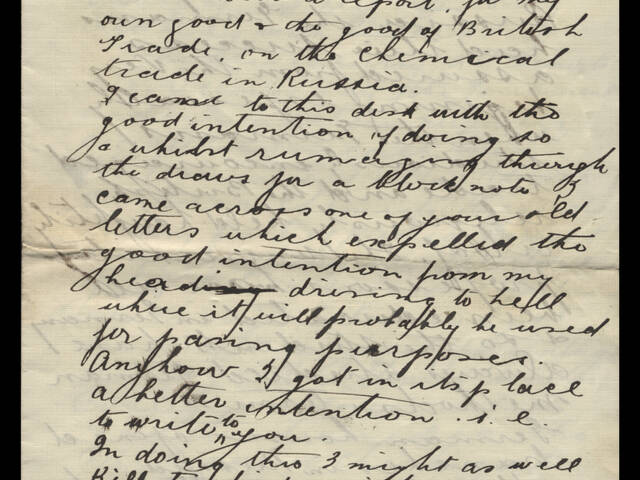 a report, for my
own good & the good of British
Trade, on the chemical
trade in Russia.
I came to this desk with the
good intention of doing so
& whilst rumerging through
the draws for a block note I
came across one of your old
letters which expelled the
good intention from my
head driving to hell
where it will probably be used
for paving purposes.
Anyhow I got in its place
a better intention. i.e.
to write to you.
In doing this I might as well
Kill